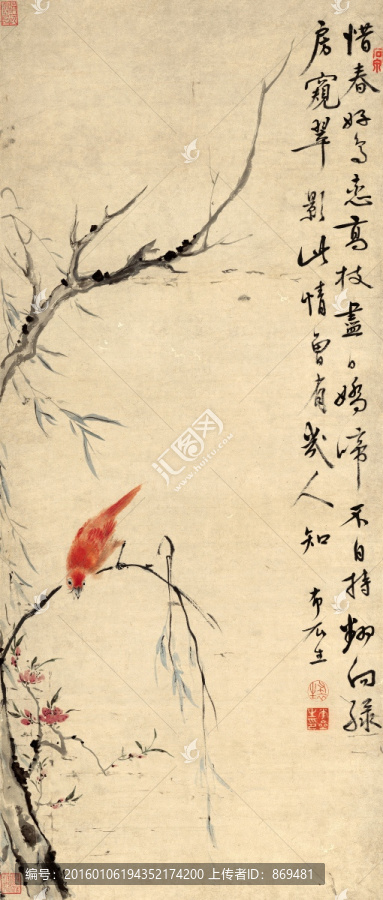 惜春好鸟恋高枝尽日娇啼不自持翻向绿
房窥翠影此情曾有几人知
布衣生
汇图网
www.huitu.com
编号：20160106194352174200 上传者ID：869481